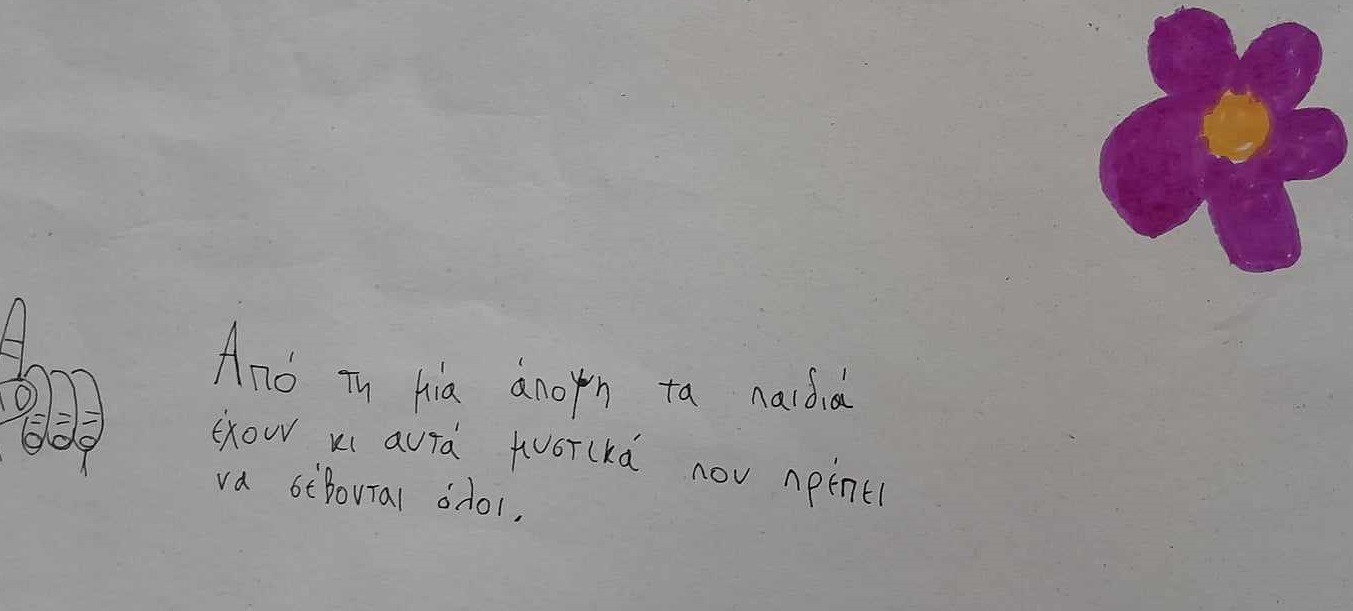 Από τη μία άποψη τα παιδιά
έχουν κι αυτά μυστικά που πρέπει
να σέβονται όλοι.